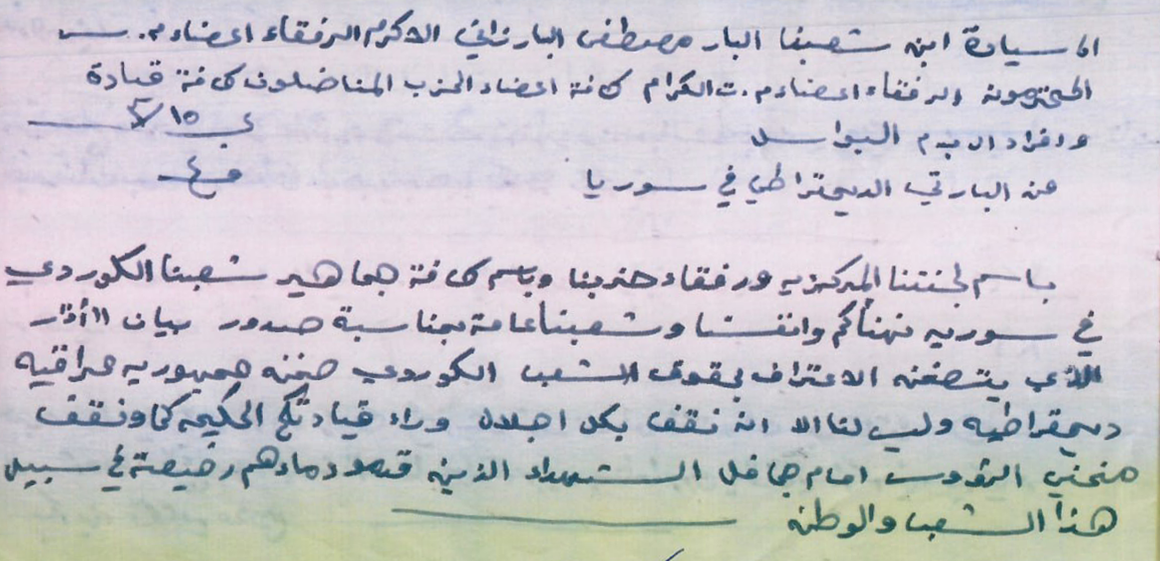 الى سيادة ابن شعبنا البار مصطفى البارزاني الاكرم الرفقاء اعضاء م. س
المحترمون الرفقاء اعضاء م. ت الكرام كافة اعضاء الحزب المناضلون كافة قيادة
وافراد البواسل
من البارتي الديمقراطي في سوريا
باسم لجنتنا المركزيه ورفقاء حزبنا وباسم كافة جماهير شعبنا الكوردي
في سوريه نهنأكم وانفسنا وشعبنا عامة بمناسبة صدور بيان ١١أذار
الذي يتضمنه الاعتراف بحقوق الشعب الكوردي ضمنه جمهوريه عراقيه
ديمقراطيه وليس لنا الا ان نقف بكل اجلال وراء قيادتكم الحكيمه كما ونقف
منحني الرؤوس امام جحافل الشهداء الذين قدموا دماءهم رخيصة في سبيل
هذا الشعب والوطن